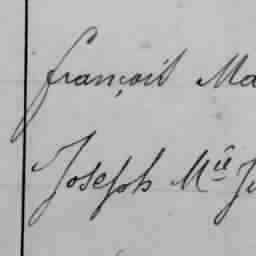 françois Ma
Joseph Mie J